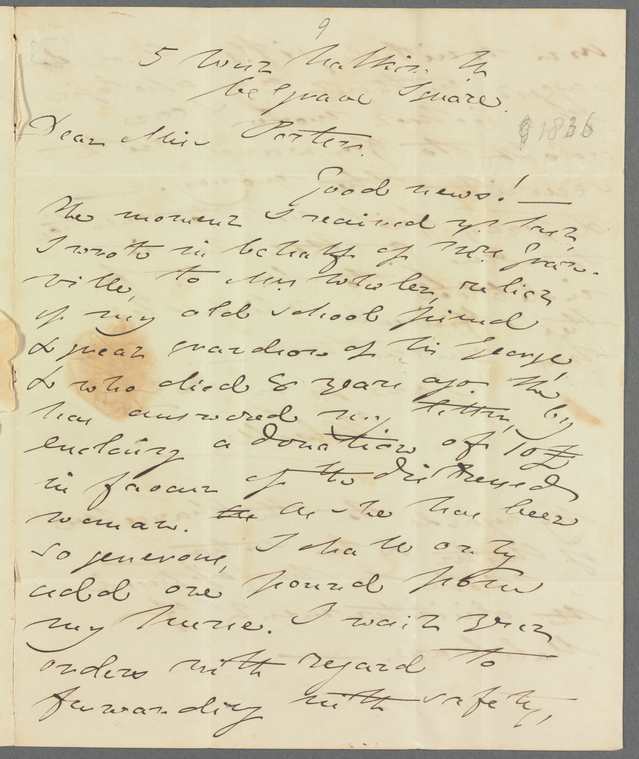 9
5 West Halkin St
Belgrave Square.
Dear Miss Porter.
1836
Good news! —
The moment I received yr letter
I wrote in behalf of Mrs Gran-
ville, to Mrs Wholer, relict
of my old school friend
& great grandson of Sir George,
& who died 8 years ago. The
has answered my letter, by
enclosing a donation of 10£
in favour of the distressed
woman. As she has been
so generous, I shall only
add one pound from
my purse. I wait your
orders with regard to
forwarding with safety,